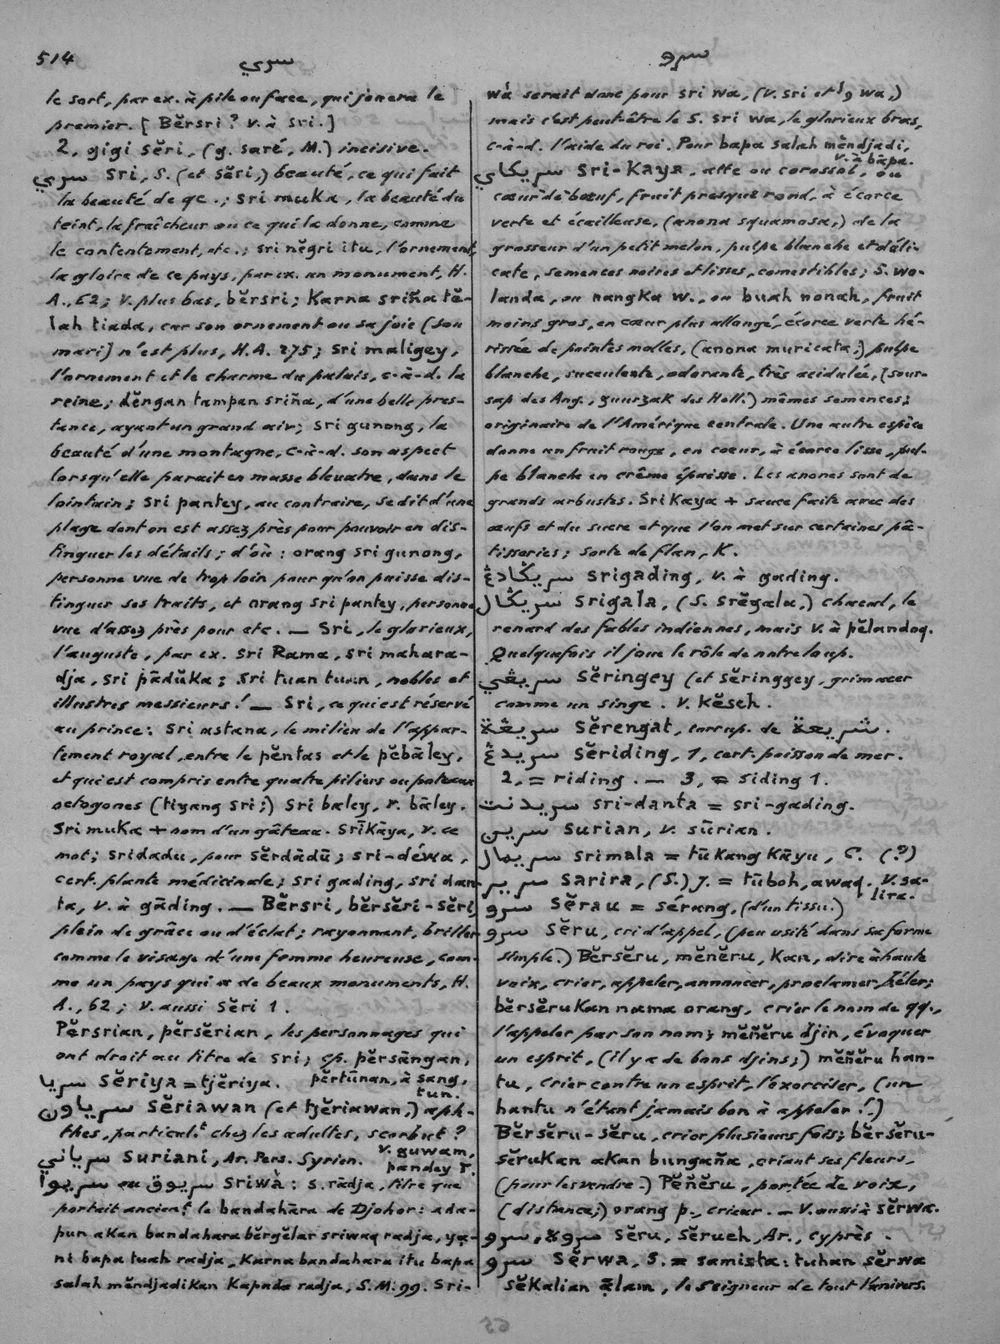 514
سري
سرو
le sort, par ex. à pile ou face, qui jouera le
premier. [Bĕrsri? v. à sri.]
2, gigi sĕri, (g. saré, M.) incisive.
سري sri, S. (et sări,) beauté, ce qui fait
la beauté de qc.; sri muka, la beauté du
teint, la fraîcheur ou ce qui la donne, comme
le contentement, etc.; sri nĕgri itu, l'ornement,
la gloire de ce pays, par ex. un monument, H.
A., 62; v. plus bas, bĕrsri; karna sriña tĕ-
lah tiada, car son ornement ou sa joie (son
mari) n'est plus, H.A. 275; sri maligey,
l'ornement et le charme du palais, c.-à-d. la
reine; dĕngan tampan sriña, d'une belle pres-
tance, ayant un grand air; sri gunong, la
beauté d'une montagne, c.-à-d. son aspect
lorsqu'elle paraît en masse bleuatre, dans le
lointain; sri pantey, au contraire, se dit d'une
plage dont on est assez près pour pouvoir en dis-
tinguer les détails; d'où: orang sri gunong,
personne vue de trop loin pour qu'on puisse dis-
tinguer ses traits, et orang sri pantey, personne
vue d'assez près pour etc. — Sri, le glorieux,
l'auguste, par ex. sri Rama, sri mahara-
dja, sri pādŭka; sri tuan tuan, nobles et
illustres messieurs! — Sri, ce qui est réservé
au prince: sri astana, le milieu de l'appar-
tement royal, entre le pĕntas et le pĕbāley,
et qui est compris entre quatre piliers ou poteaux
octogones (tiyang sri;) sri baley, v. bāley.
Sri muka + nom d'un gâteau. Srīkāya, v. ce
mot; sridadu, pour sĕrdādū; sri-déwa,
cert. plante médicinale; sri gading, sri dan-
ta, v. à gāding. — Bĕrsri, bĕrsĕri-sĕri
plein de grâce ou d'éclat; rayonnant, briller
comme le visage d'une femme heureuse, com-
me un pays qui a de beaux monuments, H.
A., 62; v. aussi sĕri 1.
Pĕrsrian, pĕrsĕrian, les personnages qui
ont droit au titre de sri; cp. pĕrsāngan,
pĕrtūnan, à sang, tun.
سريا sĕriya = tjĕriya.
سرياون sĕriawan (et tjĕriawan,) aph-
thes, particul.t chez les adultes, scorbut?
v. guwam, pandey r.
سرياني suriani, Ar. Pers. Syrien.
سريوا ou سريوق sriwà: s. rādja, titre que
portait ancient le bandahāra de Djohor: ada-
pun akan bandahara bĕrgĕlar sriwaq radja, ya-
ni bapa tuah radja, karna bandahara itu bapa
salah mĕndjadikan kapada radja, S.M. 99. Sri-
wà serait donc pour sri wa, (v. sri et وا wa,)
mais c'est peut-être le S. sri wa, le glorieux bras,
c-à-d. l'aide du roi. Pour bapa salah mĕndjadi,
v. à bāpa.
سريكاي sri-kaya, atte ou corossol, ou
cœur de bœuf, fruit presque rond, à écorce
verte et écailleuse, (anona squamosa,) de la
grosseur d'un petit melon, pulpe blanche et déli-
cate, semences noires et lisses, comestibles; s. wo-
landa, ou nangka w., ou buah nonah, fruit
moins gros, en cœur plus allongé, écorce verte hé-
rissée de pointes molles, (anona muricata,) pulpe
blanche, succulente, odorante, très acidulée, (sour-
sap des Ang., guurzak des Holl.) mêmes semences;
originaire de l'Amérique centrale. Une autre espèce
donne un fruit rouge, en coeur, à écorce lisse, pul-
pe blanche en crême épaisse. Les anones sont de
grands arbustes. Srikaya + sauce faite avec des
œufs et du sucre et que l'on met sur certaines pâ-
tisseries; sorte de flan, K.
سريݢادڠ srigading, v. à gading.
سريݢال srigala, (S. srĕgala,) chacal, le
renard des fables indiennes, mais v. à pĕlandoq.
Quelquefois il joue le rôle de notre loup.
سريڠي sĕringey (et sĕringgey, grimacer
comme un singe. v. kĕseh.
سريڠة sĕrengat, corrup. de شريعة.
سريدڠ sĕriding, 1, cert. poisson de mer.
2, = riding. — 3, = siding 1.
سريدنت sri-danta = sri-gading.
سرين surian, v. sūrian.
سريمال srimala = tūkang kāyu, C. (?)
سرير sarira, (S.) J. = tūboh, awaq. v. sa-
lira.
سرو sĕrau = sérang, (d'un tissu.)
سرو sĕru, cri d'appel, (peu usité dans sa forme
simple.) Bĕrsĕru, mĕñĕru, kan, dire à haute
voix, crier, appeler, annoncer, proclamer, héler;
bĕrsĕrukan nama orang, crier le nom de qq.,
l'appeler par son nom; mĕñĕru djin, évoquer
un esprit, (il y a de bons djins;) mĕñĕru han-
tu, crier contre un esprit, l'exorciser, (un
hantu n'étant jamais bon à appeler!.)
Bĕrsĕru-sĕru, crier plusieurs fois; bĕrsĕru-
sĕrukan akan bungaña, criant ses fleurs,
(pour les vendre.) Pĕñĕru, portée de voix,
(distance;) orang p., crieur. — V. aussi sĕrwa.
سرو, سروه sĕru, sĕrueh, Ar., cyprès.
سرو sĕrwa, S. = samista: tuhan sĕrwa
sĕkalian ālam, le Seigneur de tout l'univers.